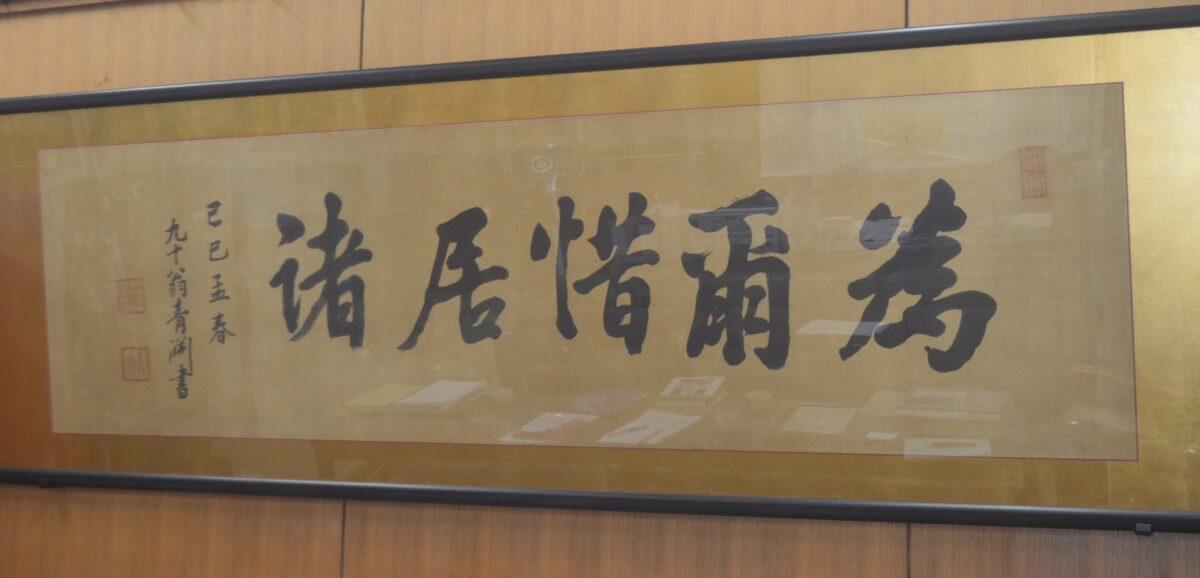 為爾惜居諸
己巳孟春
九十翁青淵書